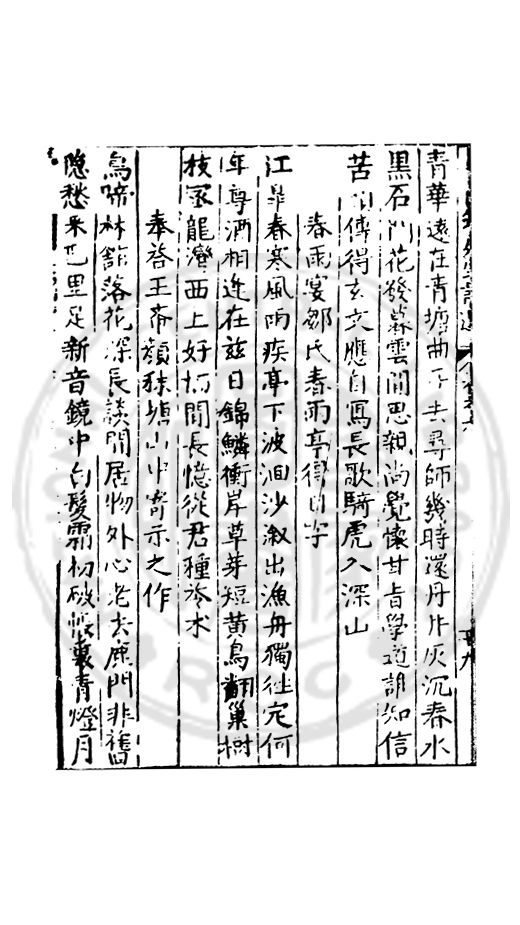 青華遠在青塘曲子去尋師幾時還丹片灰沉春水
黑石門花發暮雲間思親尚覺懷甘旨學道誰知信
苦傳得玄文應自寫長歌騎虎入深山
春雨宴鄒氏春雨亭得日字
江皐春寒風雨疾亭下波洄沙溆出漁舟獨往定何
年尊酒相近在茲日錦鱗衝岸草芽短黃鳥翻巢樹
枝龍灣西上好閒長憶從君種冷水
奉答王希顏中寄示之作
鳥啼林館落花深長談閒居物外心老去鹿門非舊
隱愁來里足新音鏡中白髮霜初破帳裏青燈月